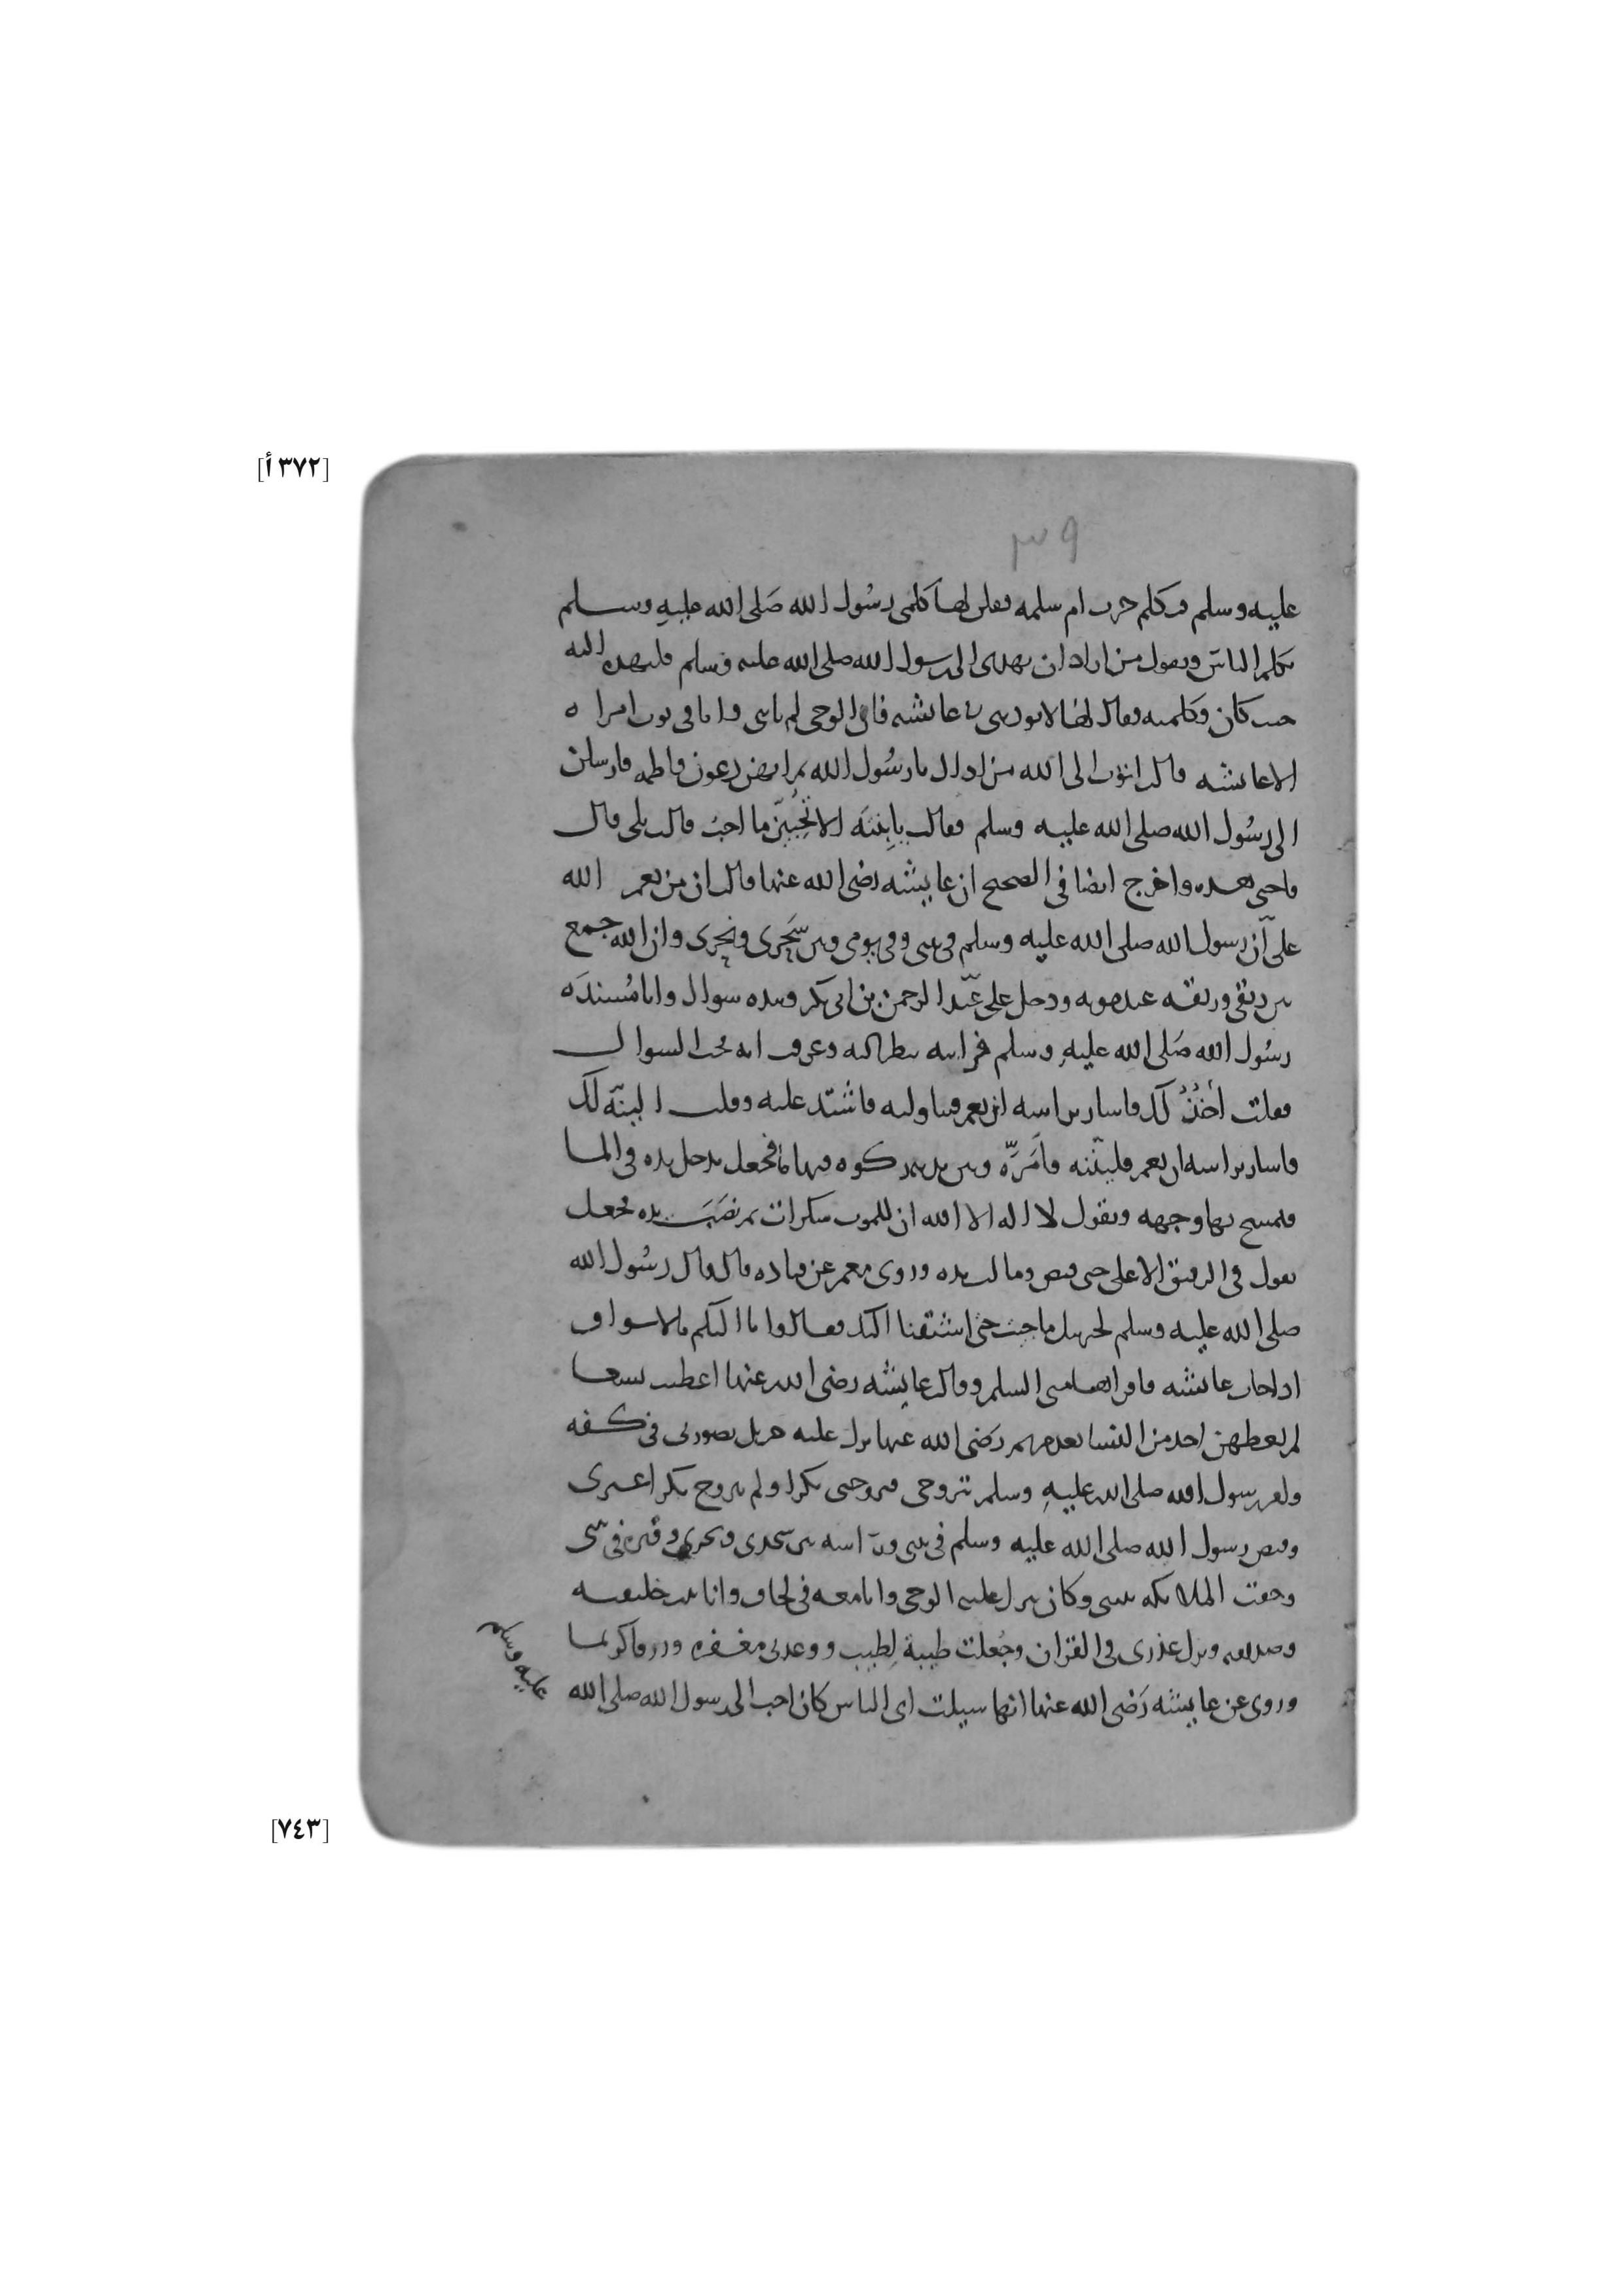 [٣٧٢ أ]
٣٥٩
عليه وسلم فكلم حزب ام سلمه فقلن لها كلمى رسُول الله صَلى الله عليهِ وسلم
يكلم الناس ويقول من اراد ان يهدى الى رسول الله صلى الله عليه وسلم فليهده اليه
حيث كان وكلمته فقال لها لا توذينى فى عائشه فان الوحى لم ياتنى وانا فى ثوب امراه
الا عائشه قالت اتوب الى الله من اذاك يا رسُول الله ثم انهن دعون فاطمه فارسلن
الى رسُول الله صلى الله عليه وسلم فقال يا بنيّه الا تُحِبّين ما احبُ قالت بلى قال
فاحبى هذه واخرج ايضا فى الصحيح ان عايشه رضى الله عنها قالت ان من نعم الله
علىّ أن رسول الله صلى الله عليه وسلم توفى فى بيتى وفى يومى وبين سَحْرى ونحرى وان الله جمع
بين ريقى وريقه عند موته ودخل علىّ عَبد الرحمن بن ابى بكر وبيده سواك وانا مُسندَه
رسُول الله صَلى الله عليهِ وسلم فرايته ينظر اليه وعرفت انه يحب السواك
فقلت اخُذُهُ لك فاشار براسه ان نعم فناولته فاشْتد عليه وقلت الينهُ لك
فاشار براسه ان نعم فليّنته فامَرَّه وبين يديه ركوه فيها ماء فجعل يدخل يده فى الما
فيمسح بها وجهه ويقول لا اله الا الله ان للموت سكرات ثم نصَبَ يده فجعل
يقول فى الرفيق الاعلى حتى قبض ومالت يده وروى معمر عن قتاده قال قال رسُول الله
صلى الله عليه وسلم لجبريل ما جئت حتى اشتقنا اليك فقال وانا اليكم بالاشواق
اذا جات عائشه فاقرائها منى السلم وقالت عايشه رضى الله عنها اعطيت تسعا
لم يعطهن احد من النسا بعد مريم رَضى الله عنها نزل عليه جبريل بصورتى فى كفه
وامر رسول الله صلى الله عليهِ وسلم بتزوجى فتزوجنى بكرا ولم يتزوج بكرا غيرى
وقبض رسول الله صلى الله عليه وسلم فى بيتى وراسه بين سحرى ونحرى وقبره فى بيتى
وحفت الملائكه بيتى وكان ينزل عليه الوحى وانا معه فى لحاف وانا بنت خليفته
وصديقه ونزل عذرى فى القران وجُعلت طيبة لِطيب ووعدنى مغفره ورزقا كريما
وروى عن عايشه رَضى الله عنها انها سيلت اى الناس كان احب الى رسول الله صلى الله
عليه وسلم
[٧٤٣]